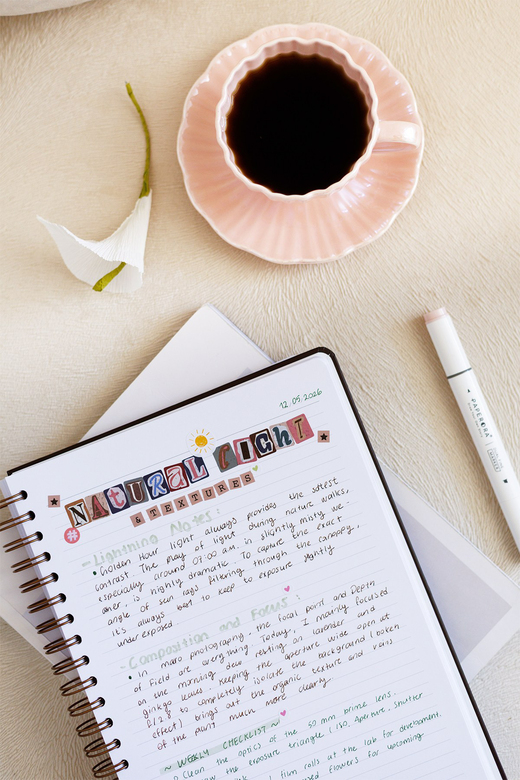 12.05.2026
NATURAL LIGHT
& TEXTURES
#
- Lightning Notes :
• Golden Hour light always provides the softest
contrast. The play of light during nature walks,
especially around 07:00 a.m. in slightly misty we-
ather, is highly dramatic. To capture the exact
angle of sun rays filtering through the canopy,
it's always best to keep to exposure slightly
under exposed.
- Composition and Focus :
• In macro photography, the focal point and Depth
of Field are everything. Today, I mainly focused
on the morning dew resting on lavender and
ginkgo leaves. Keeping the aperture wide open at
f/2.8 to completely isolate the background (bokeh
effect) brings out the organic texture and veins
of the plant much more clearly.
~ WEEKLY CHECKLIST ~
Clean the optics of the 50 mm prime lens.
the exposure triangle (ISO, Aperture, Shutter
film rolls at the lab for development.
flowers for upcoming
PAPERORA
MARKER